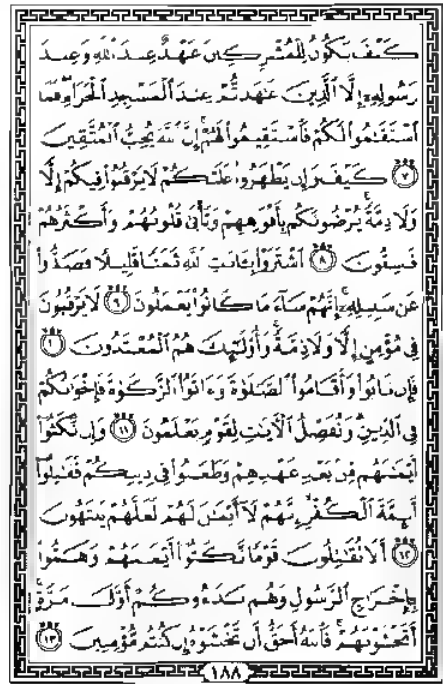 كَيْفَ يَكُونُ لِلْمُشْرِكِينَ عَهْدٌ عِندَ اللَّهِ وَعِندَ
رَسُولِهِ إِلَّا الَّذِينَ عَاهَدتُّمْ عِندَ الْمَسْجِدِ الْحَرَامِ فَمَا
اسْتَقَامُوا لَكُمْ فَاسْتَقِيمُوا لَهُمْ إِنَّ اللَّهَ يُحِبُّ الْمُتَّقِينَ
٧ كَيْفَ وَإِن يَظْهَرُوا عَلَيْكُمْ لَا يَرْقُبُوا فِيكُمْ إِلًّا
وَلَا ذِمَّةً يُرْضُونَكُم بِأَفْوَاهِهِمْ وَتَأْبَى قُلُوبُهُمْ وَأَكْثَرُهُمْ
فَاسِقُونَ ٨ اشْتَرَوْا بِآيَاتِ اللَّهِ ثَمَنًا قَلِيلًا فَصَدُّوا
عَن سَبِيلِهِ إِنَّهُمْ سَاءَ مَا كَانُوا يَعْمَلُونَ ٩ لَا يَرْقُبُونَ
فِي مُؤْمِنٍ إِلًّا وَلَا ذِمَّةً وَأُولَئِكَ هُمُ الْمُعْتَدُونَ ١٠
فَإِن تَابُوا وَأَقَامُوا الصَّلَوٰةَ وَءَاتَوُا الزَّكَوٰةَ فَإِخْوَانُكُمْ
فِي الدِّينِ وَنُفَصِّلُ الْآيَاتِ لِقَوْمٍ يَعْلَمُونَ ١١ وَإِن نَّكَثُوا
أَيْمَانَهُم مِّن بَعْدِ عَهْدِهِمْ وَطَعَنُوا فِي دِينِكُمْ فَقَاتِلُوا
أَئِمَّةَ الْكُفْرِ إِنَّهُمْ لَا أَيْمَانَ لَهُمْ لَعَلَّهُمْ يَنتَهُونَ
١٢ أَلَا تُقَاتِلُونَ قَوْمًا نَّكَثُوا أَيْمَانَهُمْ وَهَمُّوا
بِإِخْرَاجِ الرَّسُولِ وَهُم بَدَءُوكُمْ أَوَّلَ مَرَّةٍ
أَتَخْشَوْنَهُمْ فَاللَّهُ أَحَقُّ أَن تَخْشَوْهُ إِن كُنتُم مُّؤْمِنِينَ ١٣
١٨٨